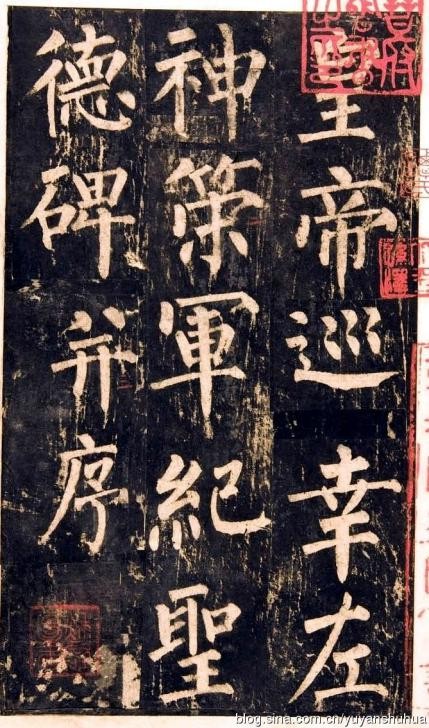 皇帝巡幸左
神策軍紀聖
德碑并序
blog.sina.com.cn/yuyanshdhua